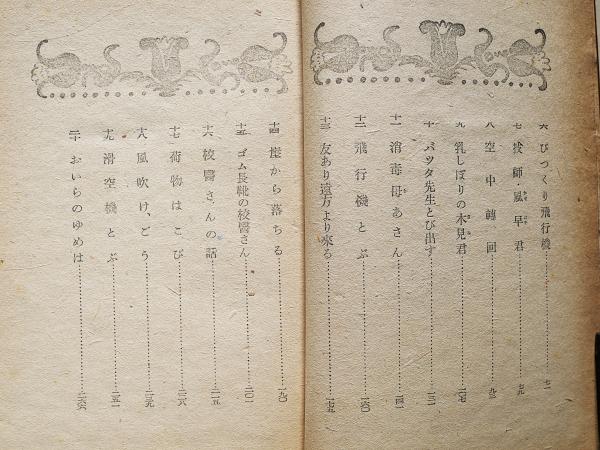 六 びつくり飛行機 七一
七 技師・風早君 七九
八 空中轉回 九三
九 乳しぼりの木兒君 一〇七
十 バツタ先生とび出す 一三一
十一 消毒母あさん 一四一
十二 飛行機とぶ 一六〇
十三 友あり遠方より來る 一七五
十四 崖から落ちる 一九〇
十五 ゴム長靴の校醫さん 二〇一
十六 校醫さんの話 二一五
十七 荷物はこび 二二六
十八 風吹け、ごう 二三九
十九 滑空機とぶ 二五一
二十 おいらのゆめは 二六六